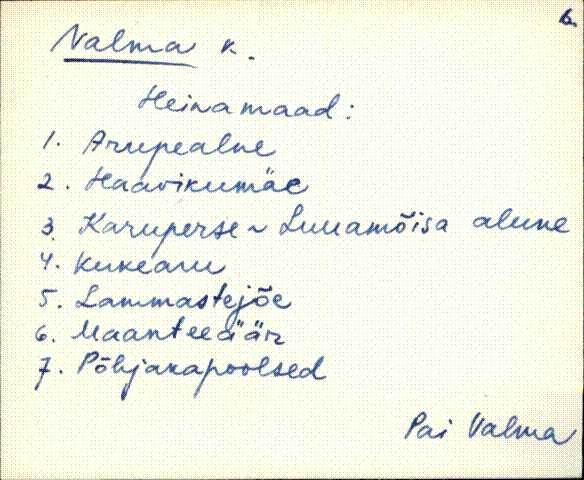 6.
Nalma k.
Heinamaad:
1. Arupealne
2. Haavikumäe
3. Karuperse ~ Luuamõisa alune
4. Kukearu
5. Lammastejõe
6. Maanteeäär
7. Põhjakapoolsed
Pai Valma